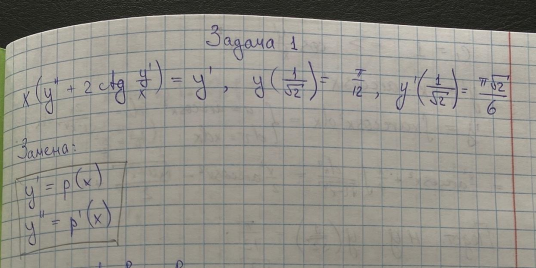 Задача 1
x(y'' + 2 ctg y'/x) = y', y(1/√2) = π/12, y'(1/√2) = π√2/6
Замена:
y' = p(x)
y'' = p'(x)